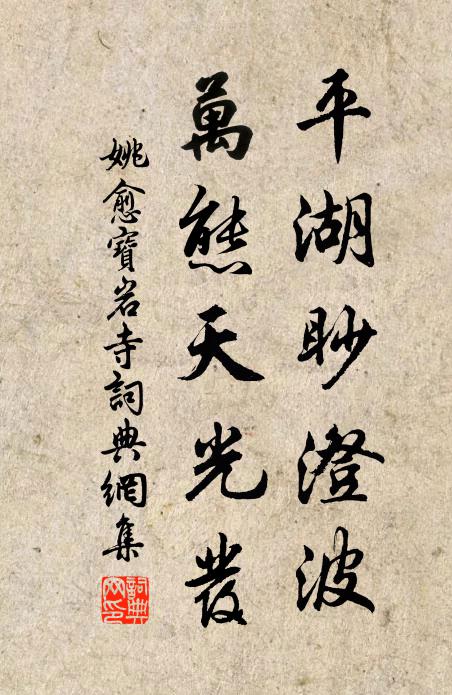 平湖眇澄波
萬態天光發
姚愈寶岩寺詞典網集
詞典網印